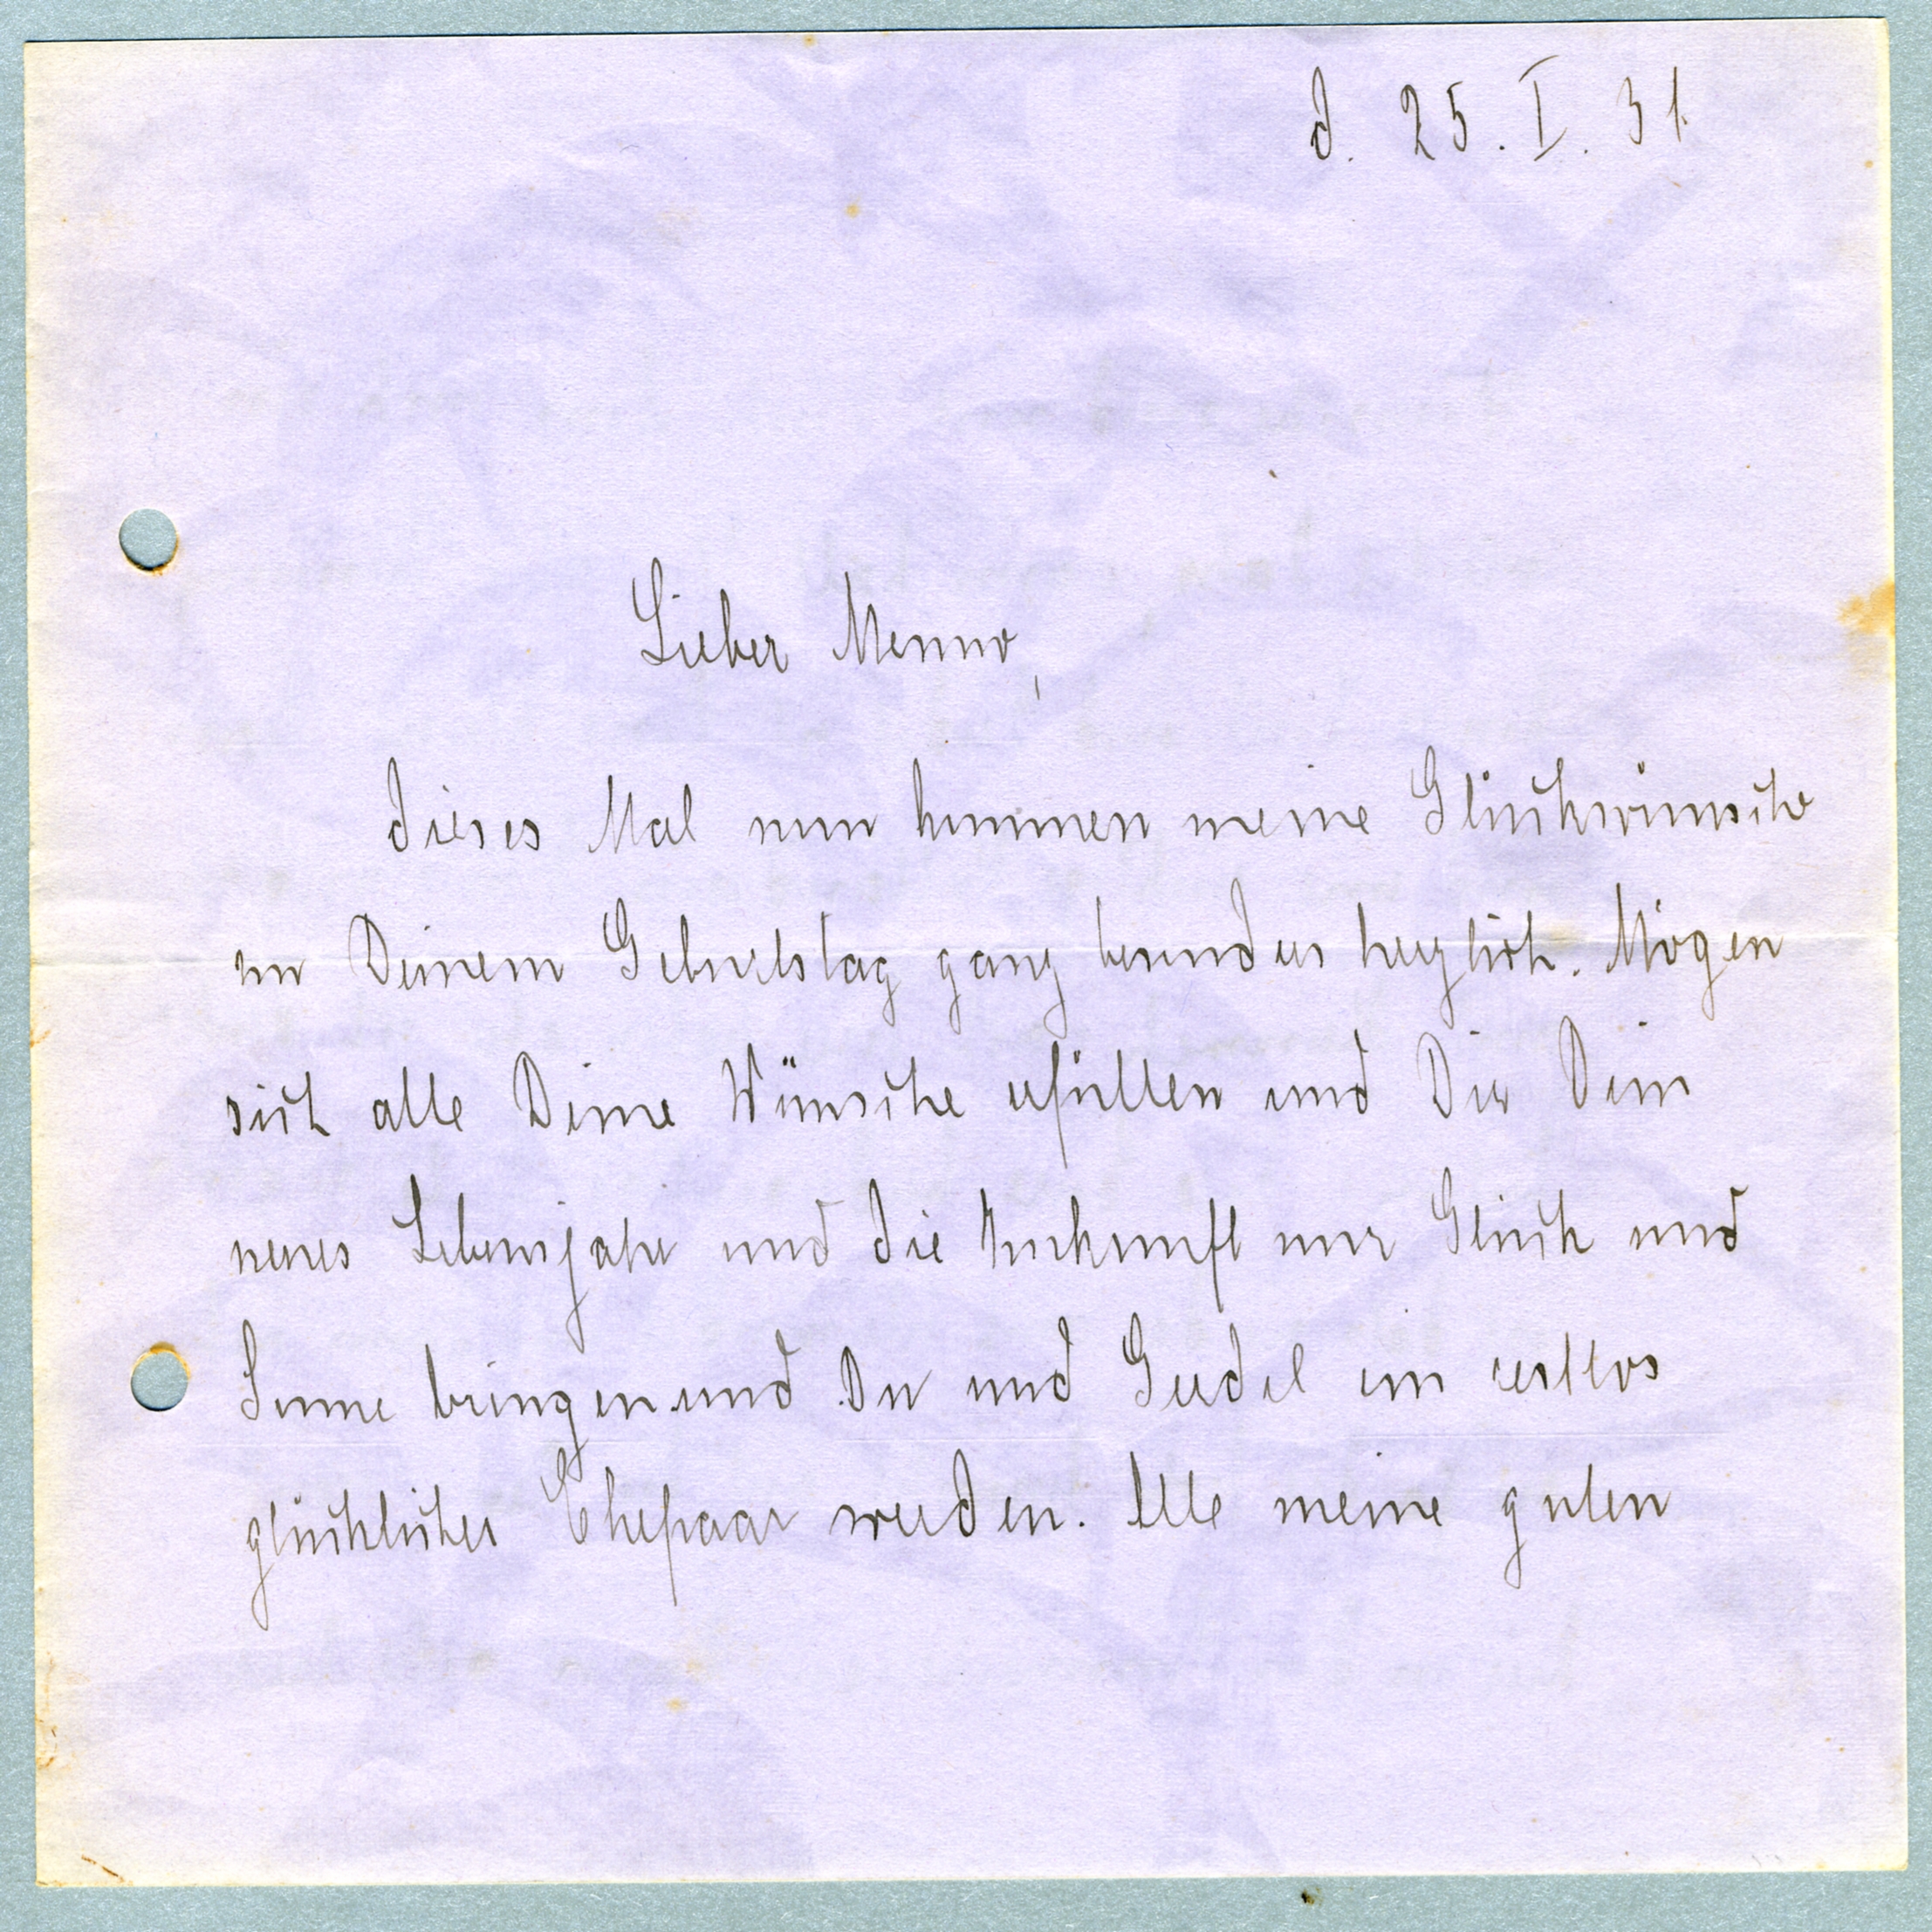 d. 25. I. 31.
Lieber Menno,
dieses Mal nun kommen meine Glückwünsche
zu Deinem Geburtstag ganz besonders herzlich. Mögen
sich alle Deine Wünsche erfüllen und Dir Dein
neues Lebensjahr und die Zukunft nur Glück und
Sonne bringen und Du und Gerdel ein restlos
glückliches Ehepaar werden. Alle meine guten